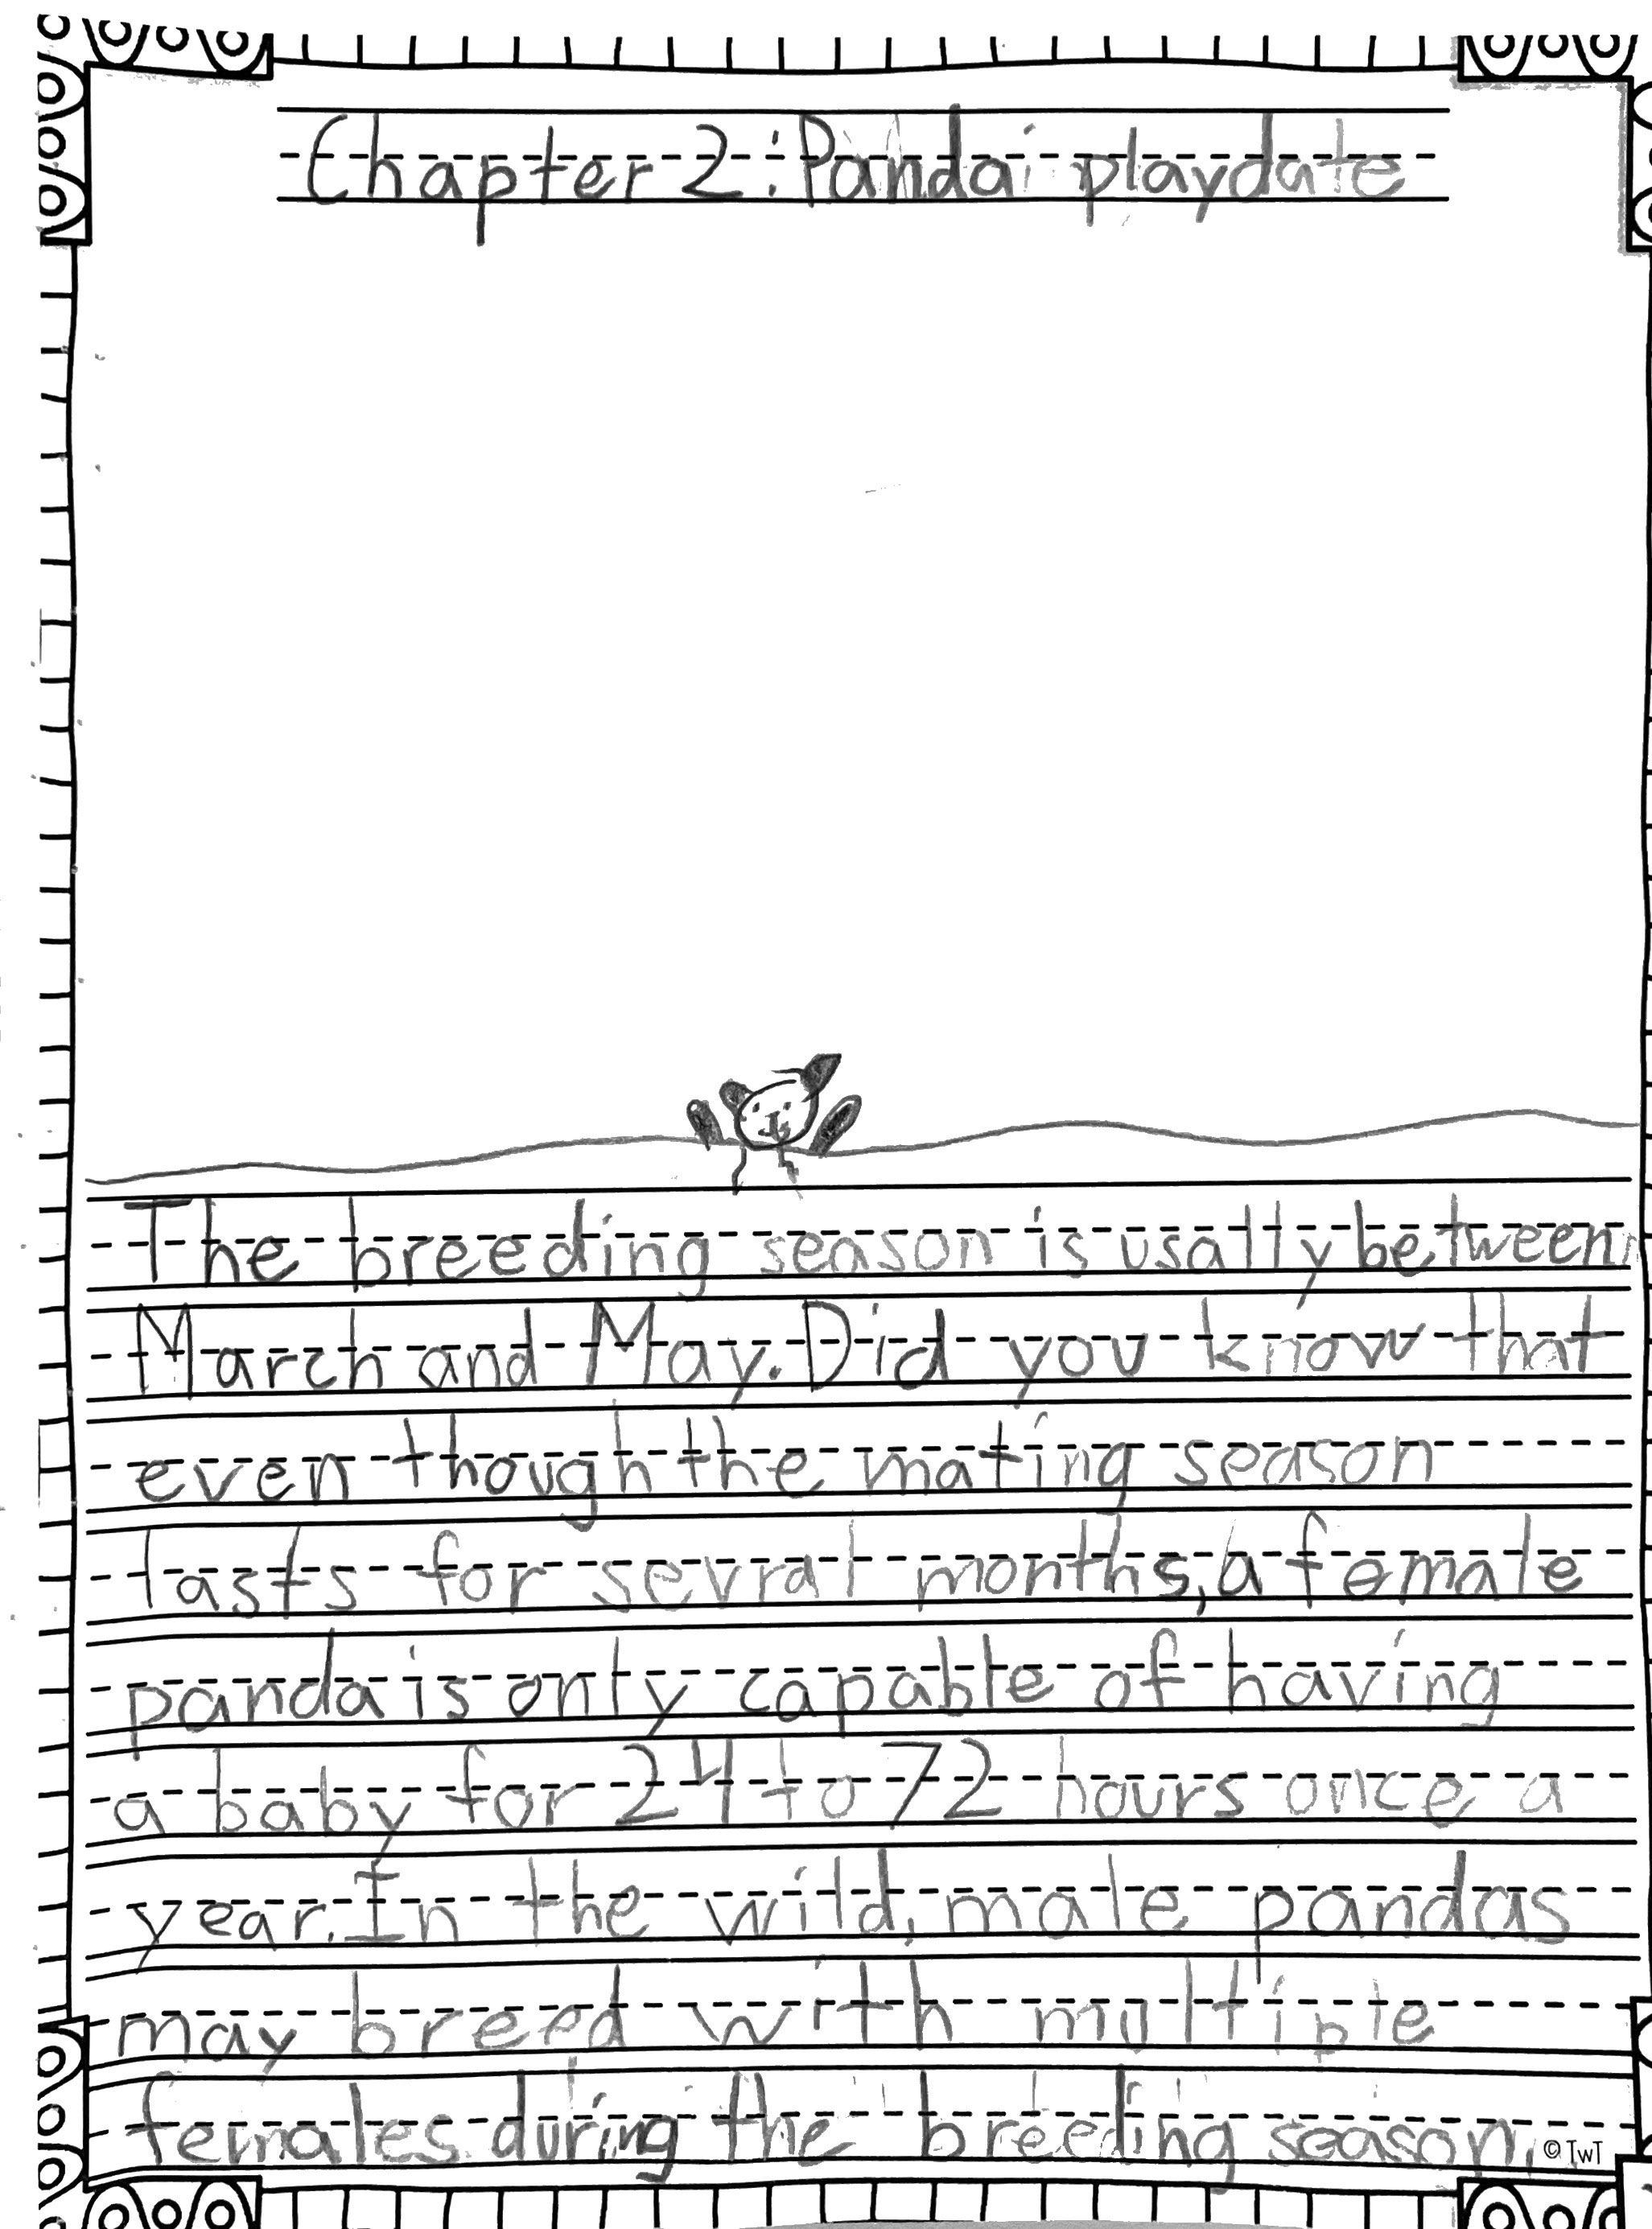 Chapter 2: Panda playdate
The breeding season is usally between
March and May. Did you know that
even though the mating season
lasts for sevral months, a female
panda is only capable of having
a baby for 24 to 72 hours once a
year. In the wild, male pandas
may breed with multiple
females during the breeding season.
© TWT